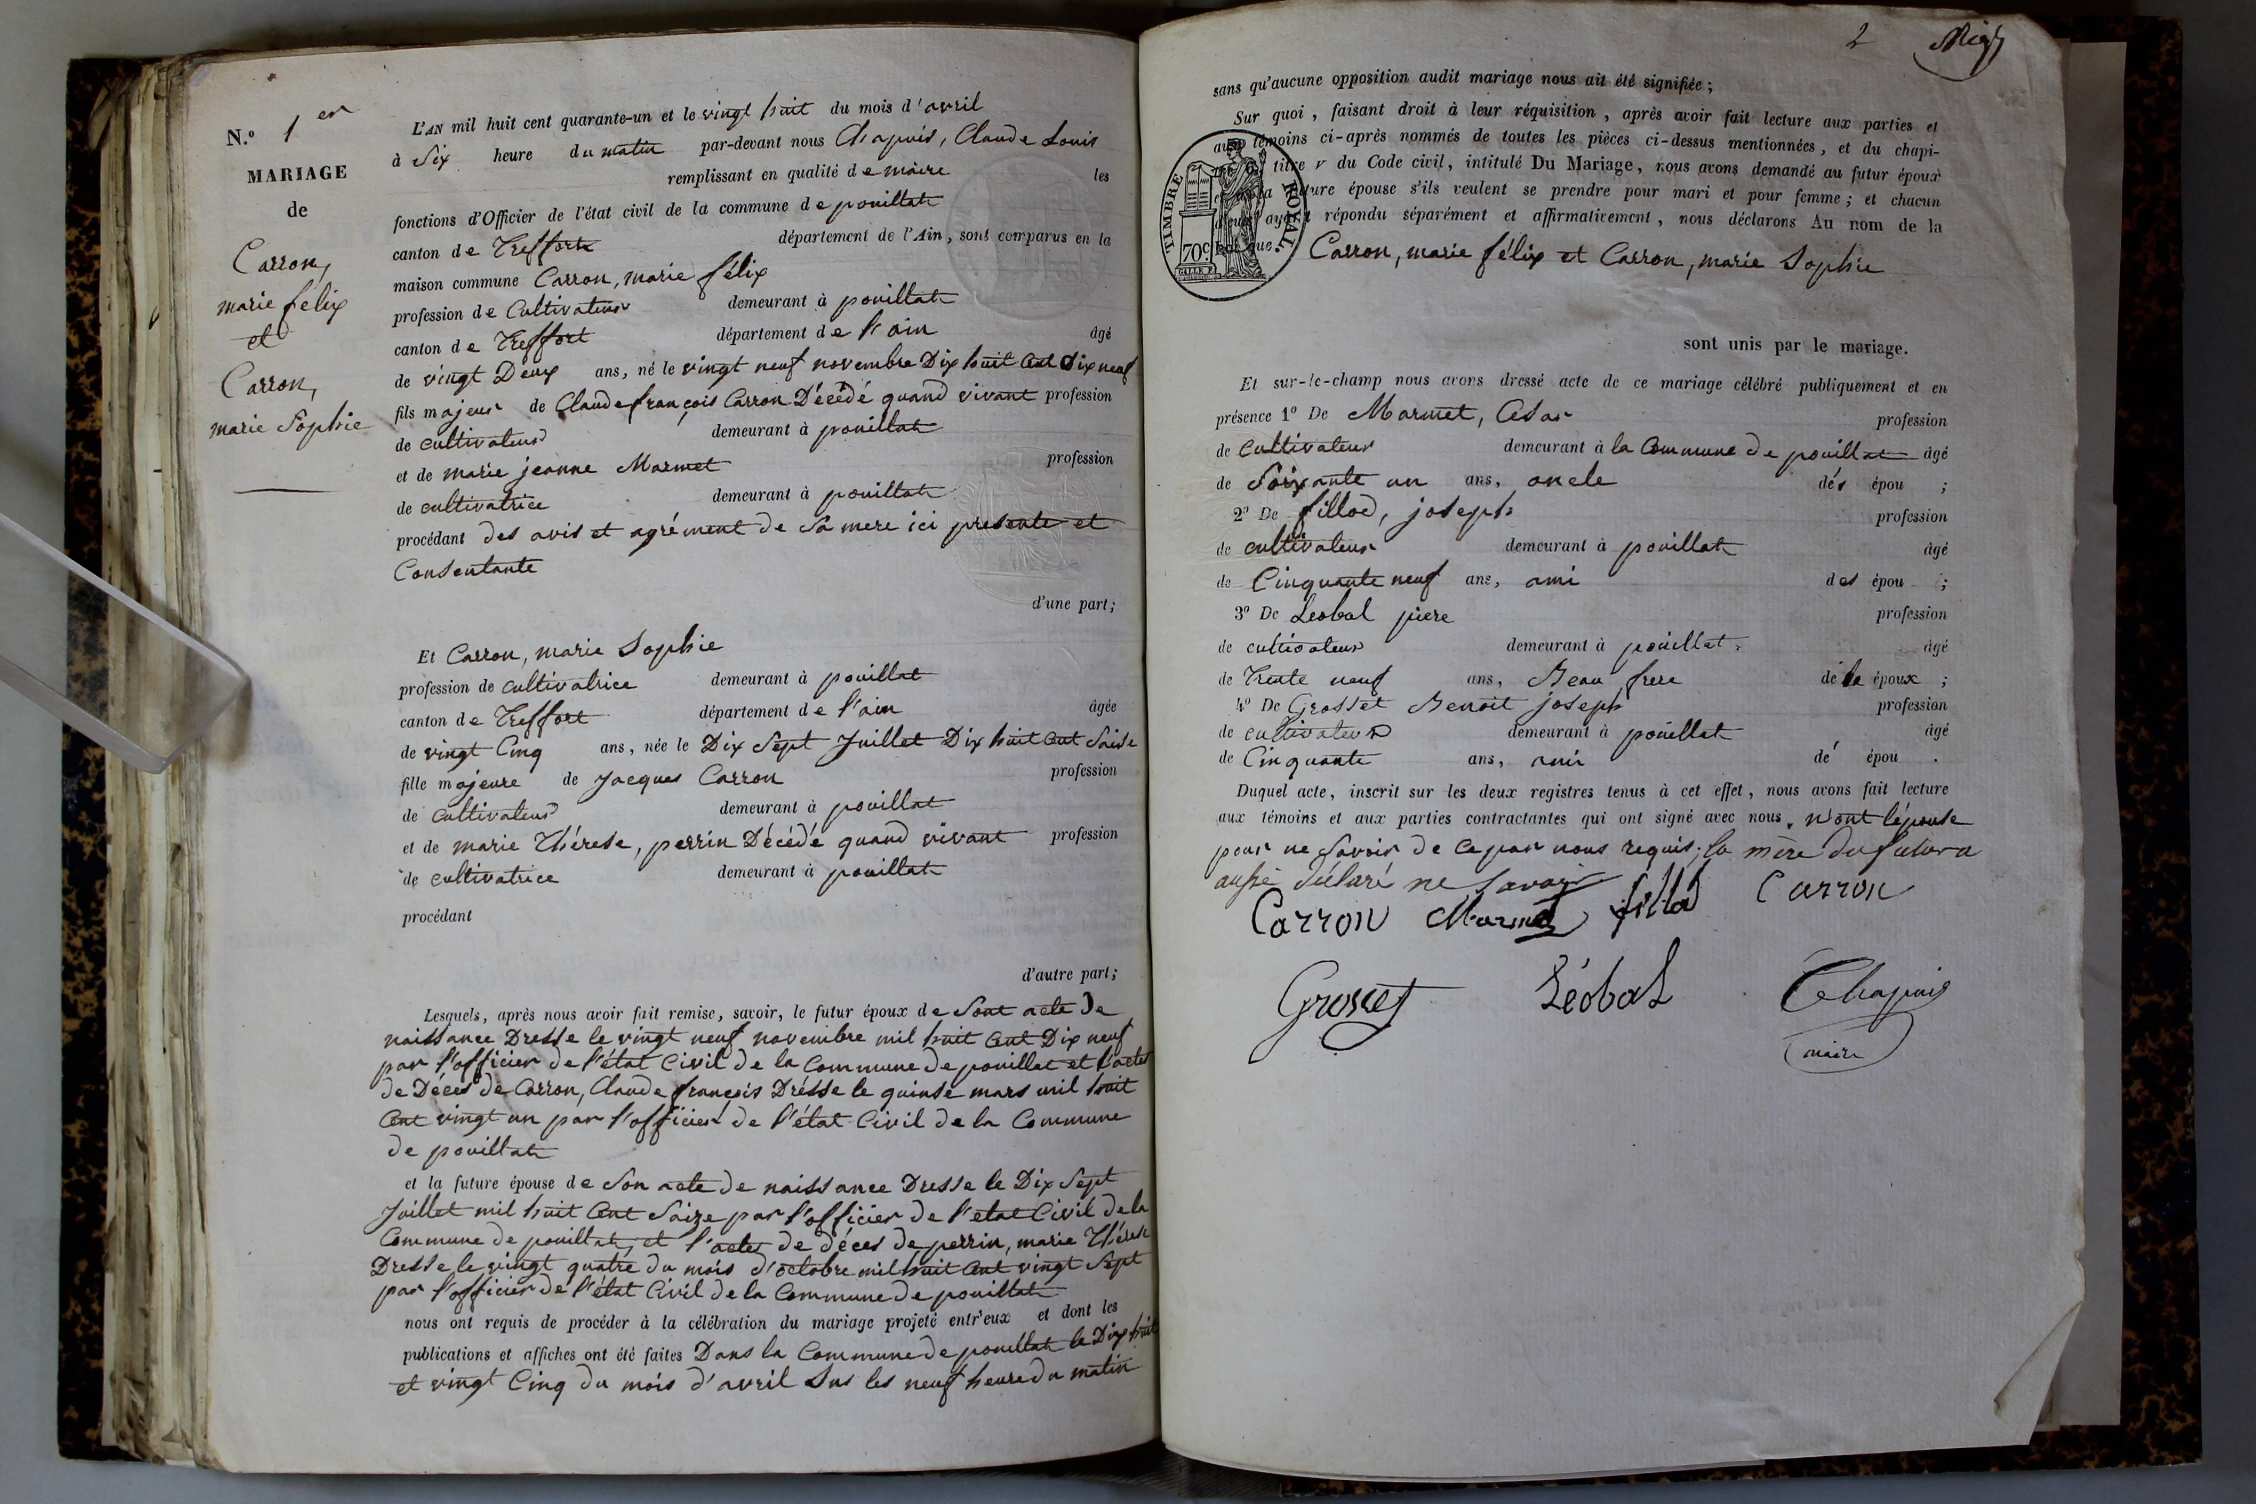 N.º 1er
MARIAGE
de
Carron,
marie félix
et
Carron,
marie Sophie
L'AN mil huit cent quarante-un et le vingt huit du mois d'avril
à Six heure du matin par-devant nous Chapuis, Claude Louis
remplissant en qualité de maire les
fonctions d'Officier de l'état civil de la commune de pouillat
canton de Treffort département de l'Ain, sont comparus en la
maison commune Carron, marie félix
profession de Cultivateur demeurant à pouillat
canton de Treffort département de l'ain âgé
de vingt Deux ans, né le vingt neuf novembre Dix huit Cent Dix neuf
fils majeur de Claude françois Carron Décédé quand vivant profession
de cultivateur demeurant à pouillat
et de marie jeanne Marmet profession
de cultivatrice demeurant à pouillat
procédant des avis et agrément de Sa mere ici presente et
Consentante
d'une part;
Et Carron, marie Sophie
profession de cultivatrice demeurant à pouillat
canton de Treffort département de l'ain âgée
de vingt Cinq ans, née le Dix Sept Juillet Dix huit Cent Saise
fille majeure de Jacques Carron profession
de cultivateur demeurant à pouillat
et de marie Thérese, perrin Décédé quand vivant profession
de cultivatrice demeurant à pouillat
procédant
d'autre part;
Lesquels, après nous avoir fait remise, savoir, le futur époux de Sont acte De
naissance Dresse le vingt neuf novembre mil huit Cent Dix neuf
par l'officier de l'état Civil de la Commune de pouillat et l'actes
de Déces de Carron, Claude françois Drésse le quinse mars mil huit
Cent vingt un par l'officier de l'état Civil de la Commune
de pouillat
et la future épouse de Son acte de naissance Dresse le Dix Sept
Juillet mil huit Cent Saize par l'officier de l'état Civil de la
Commune de pouillat, et l'actes de déces de perrin, marie Thérese
Dresse le vingt quatre du mois d'octobre mil huit Cent vingt Sept
par l'officier de l'état Civil de la Commune de pouillat
nous ont requis de procéder à la célébration du mariage projeté entr'eux et dont les
publications et affiches ont été faites Dans la Commune de pouillat le Dix huit
et vingt Cinq du mois d'avril Sus les neuf heure du matin
2
sans qu'aucune opposition audit mariage nous ait été signifiée;
Sur quoi, faisant droit à leur réquisition, après avoir fait lecture aux parties et
aux témoins ci-après nommés de toutes les pièces ci-dessus mentionnées, et du chapi-
titre V du Code civil, intitulé Du Mariage, nous avons demandé au futur époux
et à la future épouse s'ils veulent se prendre pour mari et pour femme; et chacun
d'eux ayant répondu séparément et affirmativement, nous déclarons Au nom de la
TIMBRE ROYAL
70 c.
Carron, marie félix et Carron, marie Sophie
sont unis par le mariage.
Et sur-le-champ nous avons dressé acte de ce mariage célébré publiquement et en
présence 1º De Marmet, Cesar profession
de Cultivateur demeurant à la Commune de pouillat âgé
de Soixante un ans, oncle dés épou ;
2º De fillod, joseph profession
de cultivateur demeurant à pouillat âgé
de Cinquante neuf ans, ami des épou ;
3º De Leobal piere profession
de cultivateur demeurant à pouillat. âgé
de Trente neuf ans, Beau frere de le époux ;
4º De Grosset Benoit joseph profession
de cultivateur demeurant à pouillat âgé
de Cinquante ans, ami dé épou .
Duquel acte, inscrit sur les deux registres tenus à cet effet, nous avons fait lecture
aux témoins et aux parties contractantes qui ont signé avec nous, n'ont l'épouse
pour ne Savoir de ce par nous requis; la mère du futura
aussi déclaré ne Savoir
Carron Marmet fillod Carron
Grosset Léobal Chapuis
maire